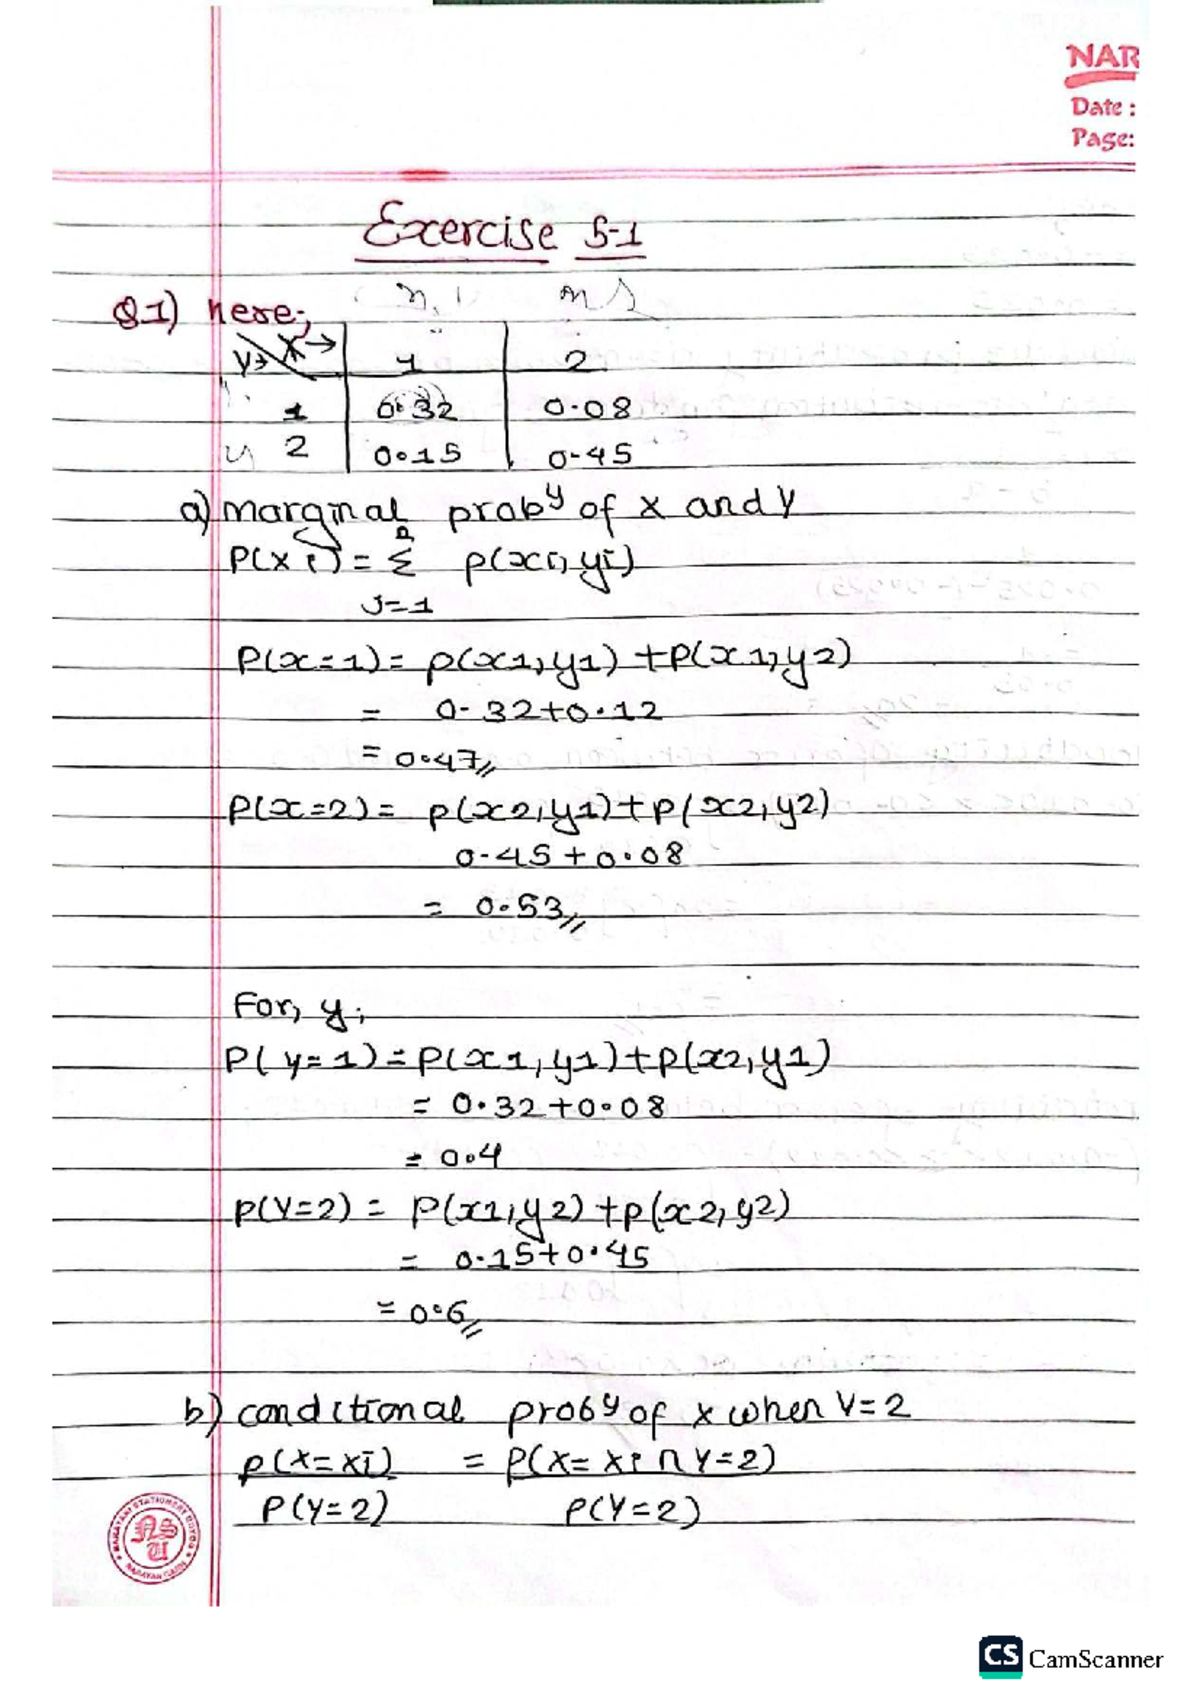 NAR
Date :
Page:
Exercise 5-1
Q1) here;
Y→ X→ 1 2
1 0.32 0.08
2 0.15 0.45
a) marginal prob^y of x and y
P(xi) = Σ p(xi, yi)
J=1
P(x=1) = p(x1, y1) + P(x1, y2)
= 0.32+0.12
= 0.47//
P(x=2) = p(x2, y1) + p(x2, y2)
0.45 + 0.08
= 0.53//
For, y;
P(y=1) = p(x1, y1) + p(x2, y1)
= 0.32+0.08
= 0.4
p(Y=2) = P(x1, y2) + p(x2, y2)
= 0.15+0.45
= 0.6//
b) conditional prob^y of x when Y=2
p(X=xi) = P(X=xi ∩ Y=2)
P(Y=2) P(Y=2)
NSU
CS CamScanner